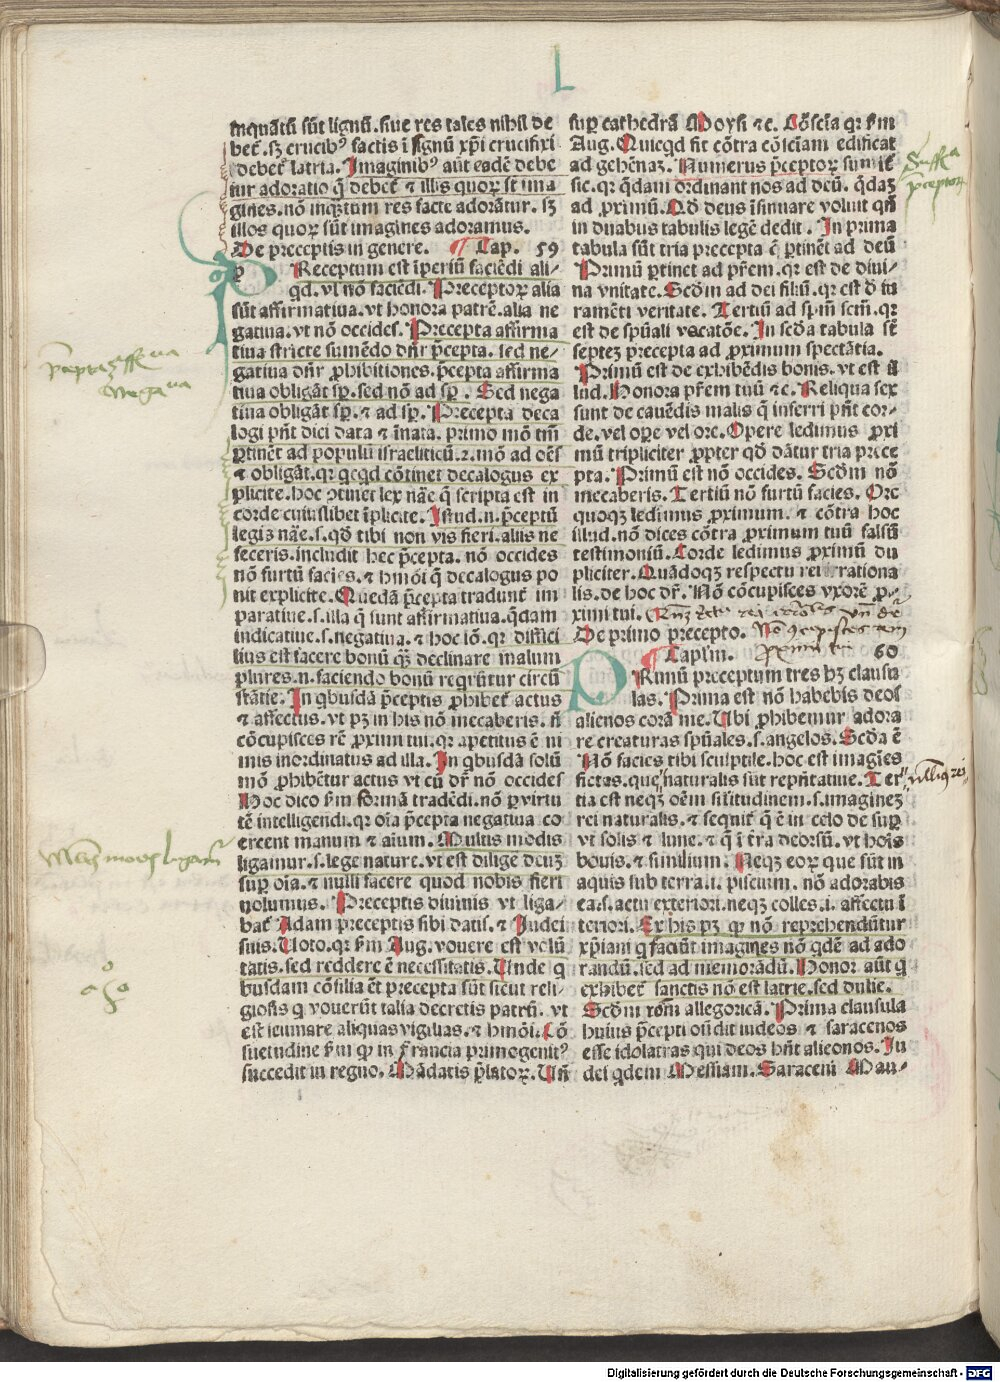 L
inquātū sūt lignū. siue res tales nihil de
bet᷑. sꝫ crucibꝰ factis ī signū xp̄i crucifixi
debet᷑ latria. Imaginibꝰ aūt eadē debe
tur adoratio q̄ debet᷑ ⁊ illis quoꝝ st̄ ima
gines. nō inqꝫtum res facte adorātur. sꝫ
illos quoꝝ sūt imagines adoramus.
De preceptis in genere. ¶ Cap. 59
PReceptum est īperiū faciēdi ali⸗
qd. vl̓ nō faciēdi. Preceptoꝝ alia
sūt affirmatiua. vt honora patrē. alia ne
gatiua. vt nō occides. Precepta affirma
tiua stricte sumēdo dn̄r p̄cepta. sed ne⸗
gatiua dn̄r ꝓhibitiones. p̄cepta affirma
tiua obligāt sp̄. sed nō ad sp̄. Sed nega
tiua obligāt sp̄. ⁊ ad sp̄. Precepta deca
logi pn̄t dici data ⁊ īnata. primo mō tm̄
ꝑtinēt ad populū israeliticū. 2. mō ad oēs
⁊ obligāt. qꝛ qcqd cōtinet decalogus ex
plicite. hoc ꝯtinet lex nāe q̄ scripta est in
corde cuiuslibet īplicite. Istud. n. p̄ceptū
legis nāe. s. qd̓ tibi non vis fieri. aliis ne
feceris. includit hec p̄cepta. nō occides
nō furtū facies. ⁊ hmōi q̄ decalogus po
nit explicite. Quedā p̄cepta tradunt᷑ im
paratiue. s. illa q̄ sunt affirmatiua. q̄dam
indicatiue. s. negatiua. ⁊ hoc iō. qꝛ diffici
lius est facere bonū qꝫ̄ declinare malum
plures. n. faciendo bonū reqrūtur circū
stātie. In qbusdā p̄ceptis ꝓhibet᷑ actus
⁊ affectus. vt pꝫ in his nō mecaberis. n̄
cōcupisces rē ꝓximi tui. qꝛ apetitus ē ni
mis inordinatus ad illa. In qbusdā solū
mō ꝓhibētur actus vt cū dr̄ nō occides
Hoc dico s̄m formā tradēdi. nō ꝑ virtu
tē intelligendi. qꝛ oīa p̄cepta negatiua co
ercent manum ⁊ aīum. Multis modis
ligamur. s. lege nature. vt est dilige deuꝫ
suꝑ oīa. ⁊ nulli facere quod nobis fieri
nolumus. Preceptis diuinis vt liga⸗
bat᷑ Adam preceptis sibi datis. ⁊ Iudei
suis. Uoto. qꝛ s̄m Aug. vouere est volū
tatis. sed reddere ē necessitatis. Unde q
busdam cōsilia ēt precepta sūt sicut reli⸗
giosis q vouerūt talia decretis patrū. vt
est ieiunare aliquas vigilias. ⁊ hmōi. Cō
suetudine s̄m qꝫ in Francia primogenitꝰ
succedit in regno. Mādatis p̄latoꝝ. Un̄
suꝑ cathedrā Moysi ⁊c. Cōsciā qꝛ s̄m
Aug. Quicqd fit cōtra cōsciam edificat
ad gehēnaꝫ. Numerus p̄ceptoꝝ sumit᷑
sic. qꝛ q̄dam ordinant nos ad deū. q̄daꝫ
ad ꝓximū. Qd̓ deus īsinuare voluit qn̄
in duabus tabulis legē dedit. In prima
tabula sūt tria precepta ē ꝑtinēt ad deū
Primū ꝑtinet ad pr̄em. qꝛ est de diui⸗
na vnitate. Scd̓m ad dei filiū. qꝛ est d̓ iu
ramēti veritate. Tertiū ad spm̄ scm̄. qꝛ
est de spūali vocatōe. In scd̓a tabula st̄
septeꝫ precepta ad ꝓximum spectātia.
Primū est de exhibēdis bonis. vt est il
lud. Honora pr̄em tuū ⁊c. Reliqua sex
sunt de cauēdis malis q̄ inferri pn̄t cor⸗
de. vel oꝑe vel ore. Opere ledimus ꝓxi
mū tripliciter ꝓpter qd̓ dātur tria prece
pta. Primū est nō occides. Scd̓m nō
mecaberis. Tertiū nō furtū facies. Ore
quoqꝫ ledimus ꝓximum. ⁊ cōtra hoc
illud. nō dices cōtra ꝓximum tuū falsū
testimoniū. Corde ledimus ꝓximū du
pliciter. Quādoqꝫ respectu rei irrationa
lis. de hoc dr̄. Nō cōcupisces vxorē ꝓ⸗
ximi tui.
De primo precepto.
¶ Capl̓m. 60
PRimū preceptum tres hꝫ clausu
las. Prima est nō habebis deos
alienos corā me. Ubi ꝓhibemur adora
re creaturas spūales. s. angelos. Scd̓a ē
Nō facies tibi sculptile. hoc est imagīes
fictas. que naturalis sūt repn̄tatiue. Ter
tia est neqꝫ oēm sil̓itudinem. s. imagineꝫ
rei naturalis. ⁊ seqnit᷑ q̄ ē in celo de suꝑ
vt solis ⁊ lune. ⁊ q̄ ī tr̄a deorsū. vt hoīs
bouis. ⁊ similium. Neqꝫ eoꝝ que sūt in
aquis sub terra. i. piscium. nō adorabis
ea. s. actu exteriori. neqꝫ colles. i. affectu ī
teriori. Ex his pꝫ qꝫ nō reprehendūtur
xp̄iani q faciūt imagines nō qdē ad ado
randū. sed ad memorādū. Honor aūt q̄
exhibet᷑ sanctis nō est latrie. sed dulie.
Scd̓m rōm allegoricā. Prima clausula
huius p̄cepti oñdit iudeos ⁊ saracenos
esse idolatras qui deos hn̄t alieonos. Iu
dei qdem Messiam. Saraceni Mau⸗
Digitalisierung gefördert durch die Deutsche Forschungsgemeinschaft - DFG